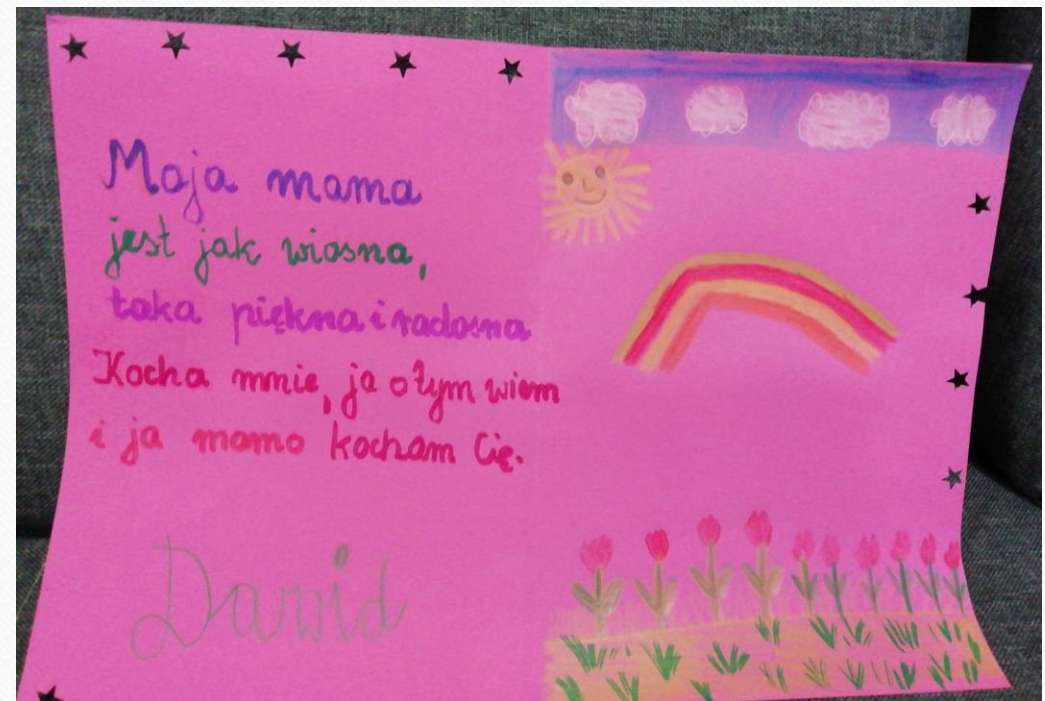 Moja mama
jest jak wiosna,
taka piękna i radosna
Kocha mnie, ja o tym wiem
i ja mamo kocham Cię.
Dawid